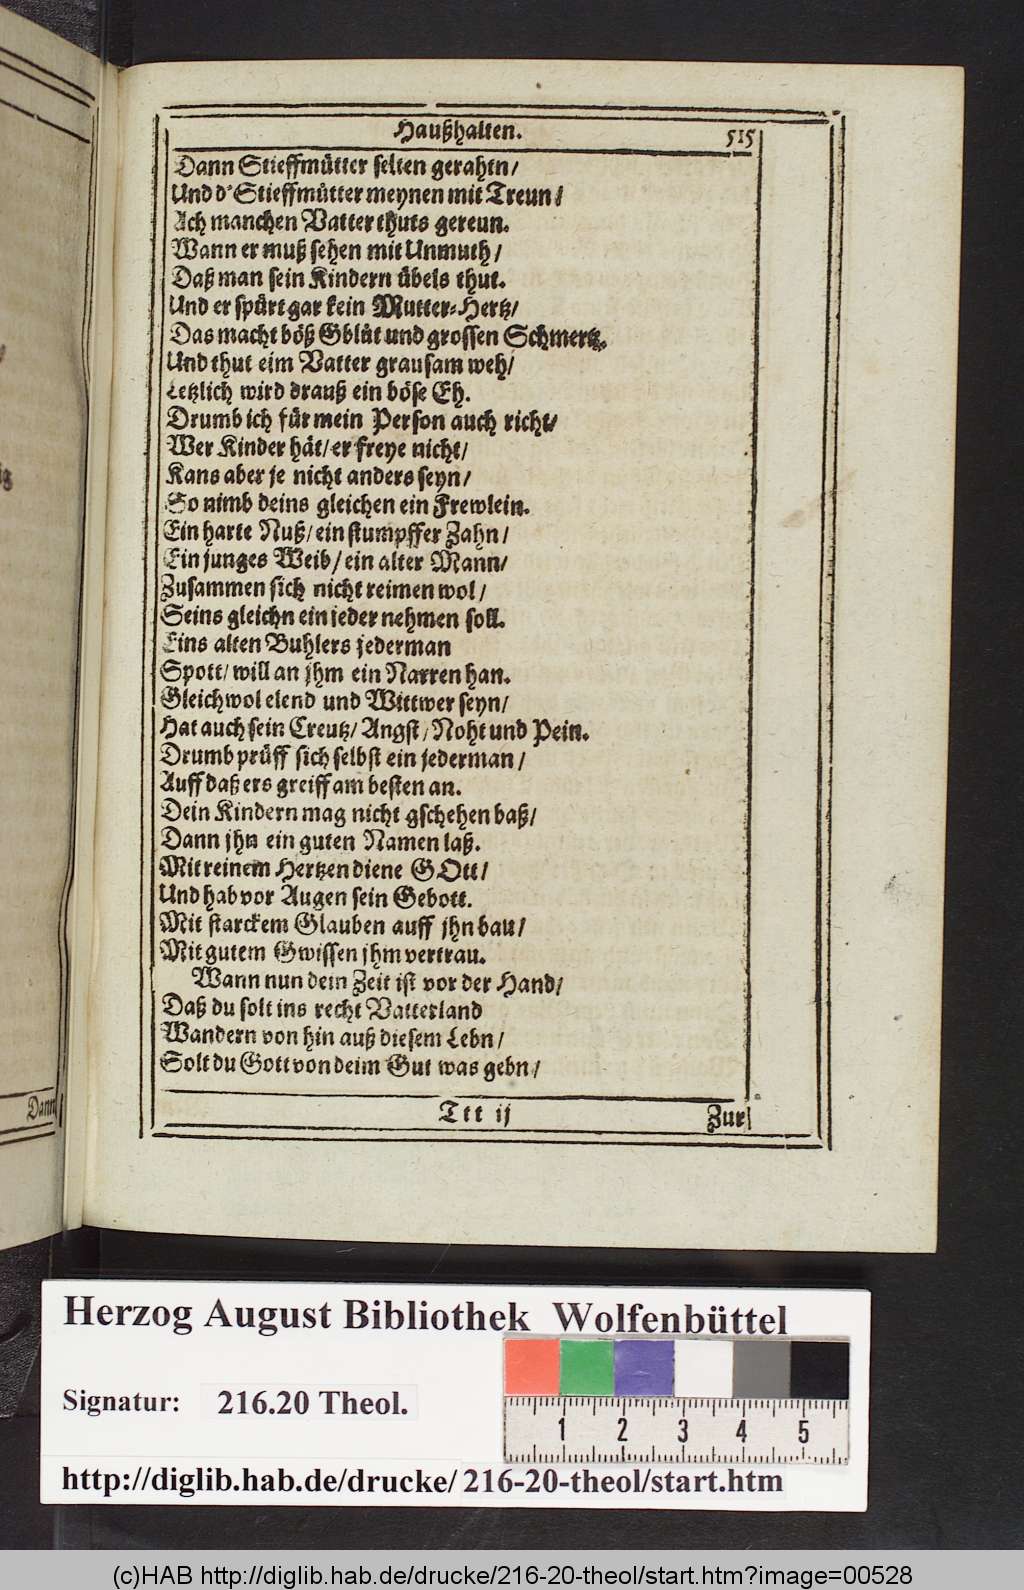 Haußhalten. 515
Dann Stieffmütter selten gerahtn/
Und d' Stieffmütter meynen mit Treun/
Ach manchen Vatter thuts gereun.
Wann er muß sehen mit Unmuth/
Daß man sein Kindern übels thut.
Und er spürt gar kein Mutter-Hertz/
Das macht böß Gblüt und grossen Schmertz.
Und thut eim Vatter grausam weh/
Letzlich wird drauß ein böse Eh.
Drumb ich für mein Person auch richt/
Wer Kinder hät/ er freye nicht/
Kans aber je nicht anders seyn/
So nimb deins gleichen ein Frewlein.
Ein harte Nuß/ ein stumpffer Zahn/
Ein junges Weib/ ein alter Mann/
Zusammen sich nicht reimen wol/
Seins gleichn ein jeder nehmen soll.
Eins alten Buhlers jederman
Spott/ will an jhm ein Narren han.
Gleichwol elend und Wittwer seyn/
Hat auch sein Creutz/ Angst/ Noht und Pein.
Drumb prüff sich selbst ein jederman/
Auff daß ers greiff am besten an.
Dein Kindern mag nicht gschehen baß/
Dann jhn ein guten Namen laß.
Mit reinem Hertzen diene GOtt/
Und hab vor Augen sein Gebott.
Mit starckem Glauben auff jhn bau/
Mit gutem Gwissen jhm vertrau.
Wann nun dein Zeit ist vor der Hand/
Daß du solt ins recht Vatterland
Wandern von hin auß diesem Lebn/
Solt du Gott von deim Gut was gebn/
Ttt ij Zur
Dann
Herzog August Bibliothek Wolfenbüttel
Signatur: 216.20 Theol.
1 2 3 4 5
http://diglib.hab.de/drucke/216-20-theol/start.htm
(c)HAB http://diglib.hab.de/drucke/216-20-theol/start.htm?image=00528